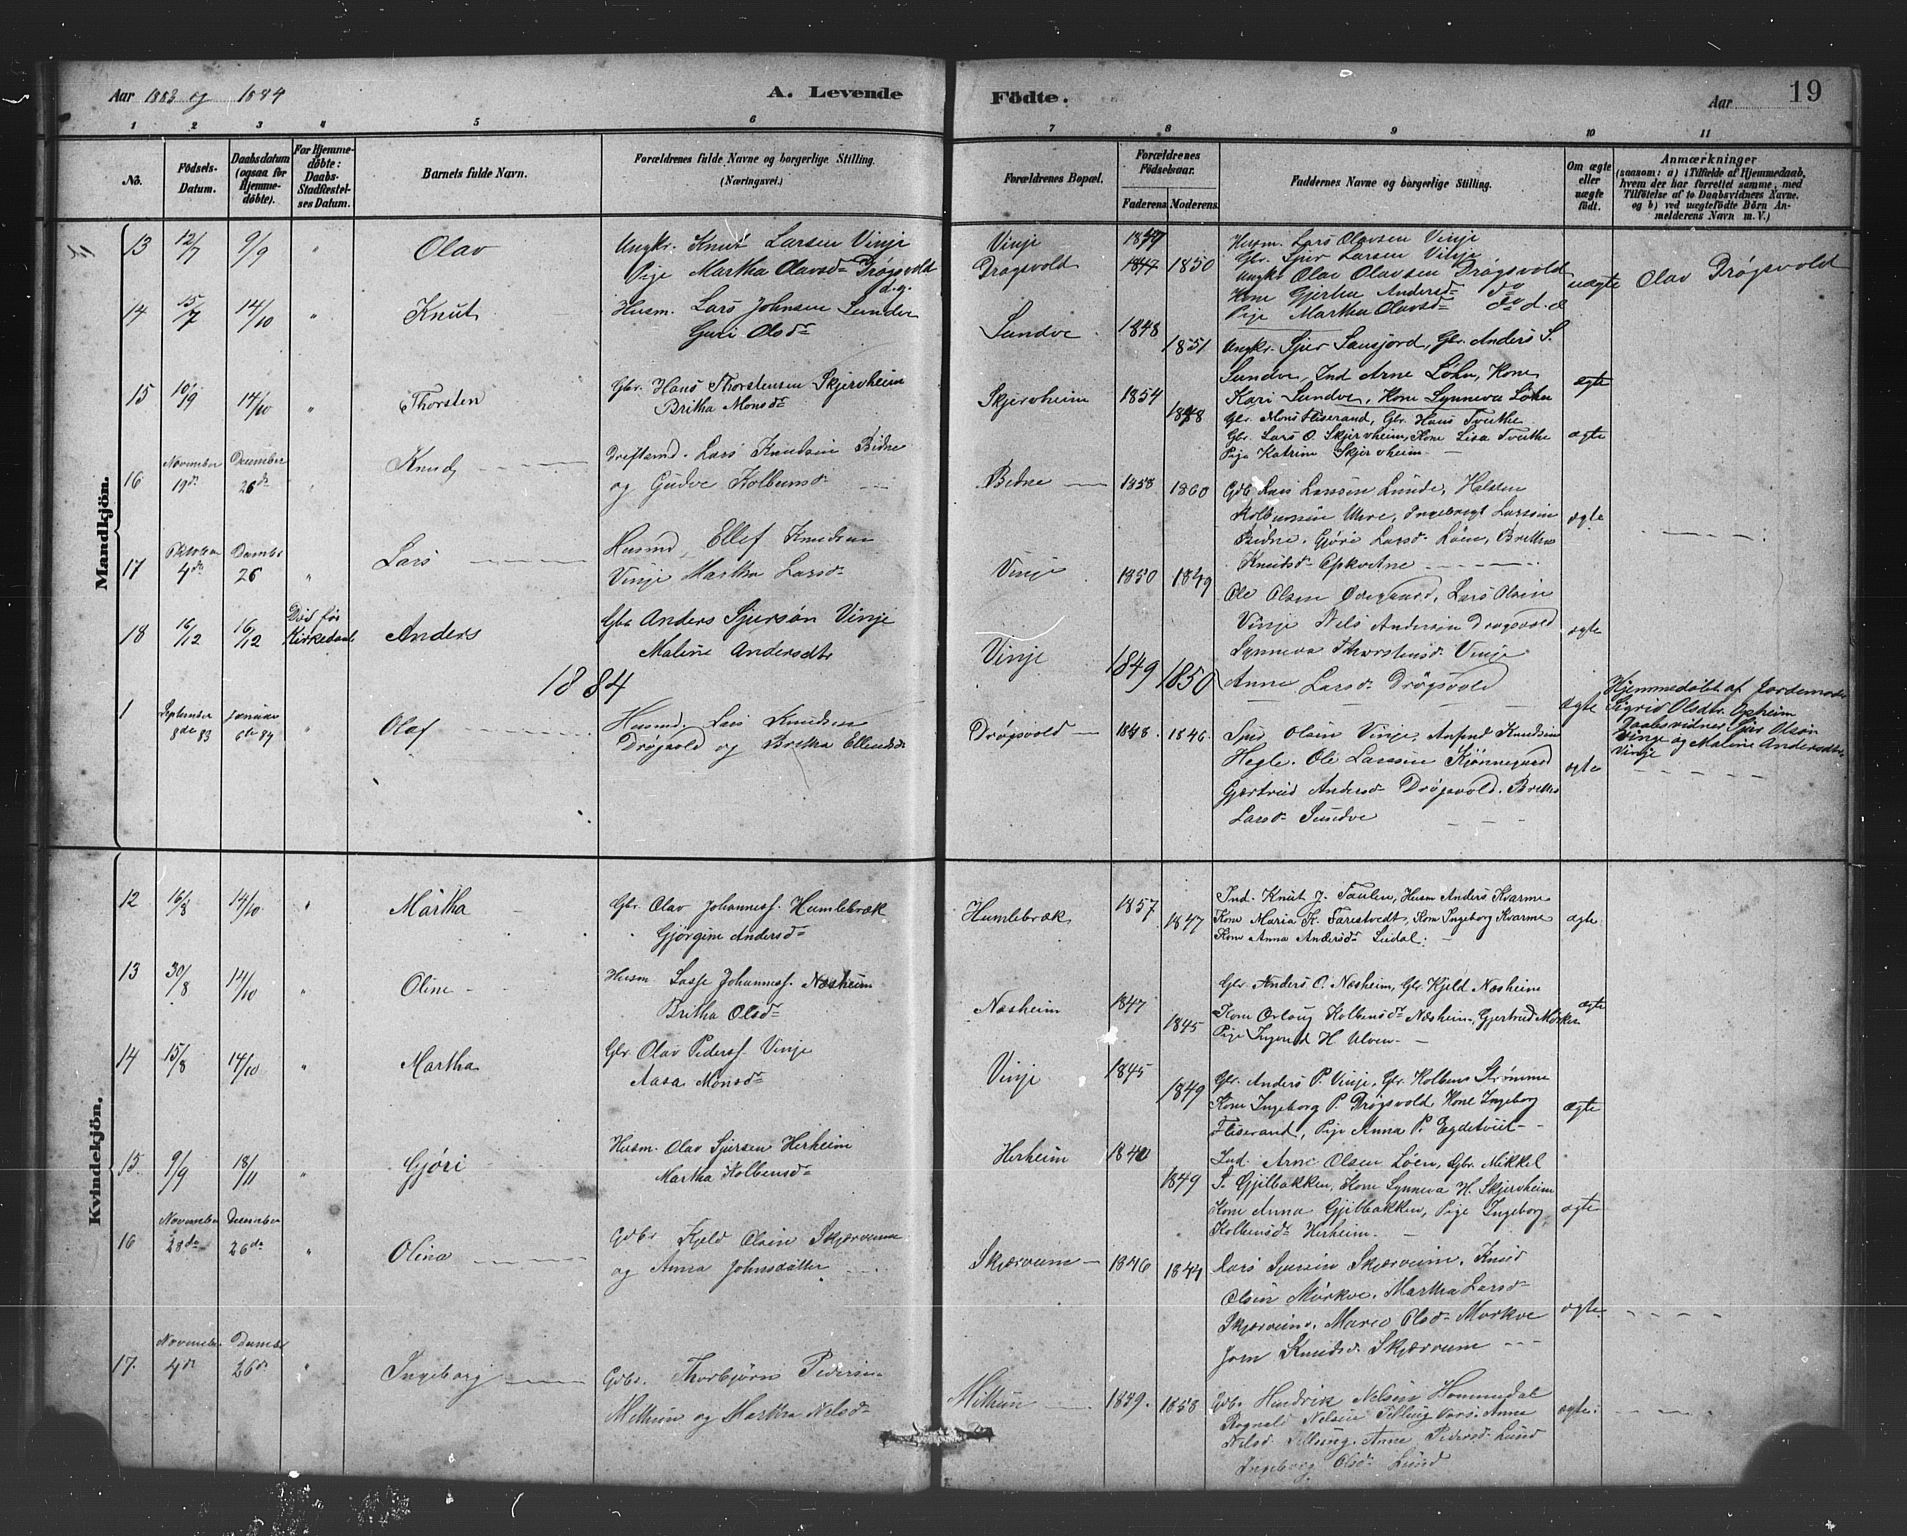 Aar 1883 og 1884
A. Levende
Födte.
Aar
19
1
2
3
4
5
6
7
8
9
10
11
No.
Födsels-
Datum.
Daabsdatum
(ogsaa for
Hjemme-
döbte).
For Hjemme-
döbte:
Daabs-
Stadfæstel-
ses Datum.
Barnets fulde Navn.
Forældrenes fulde Navne og borgerlige Stilling.
(Næringsvei.)
Forældrenes Bopæl.
Forældrenes
Födselsaar.
Faderens. Moderens.
Faddernes Navne og borgerlige Stilling.
Om ægte
eller
uægte
födt.
Anmærkninger
(saasom: a) i Tilfælde af Hjemmedaab,
hvem der har forrettet samme, med
Tilföielse af to Daabsvidners Navne.
og b) ved uægtefödte Börn An-
melderens Navn m. V.)
Mandkjön.
13 12/7 9/9 " Olav
Ungkr. Knut Larsen Vinje
Pige Martha Olavsdr Drøgsvold
Vinje
Drøgsvold
1850
Husm. Lars Olavsen Vinje
Gbr. Sjur Larsen Vinje
Ungkr Olav Olavsen Drøgsvold
Kone Gjertru Andersdr do
Pige Martha Olavsdr do
uægte
Olav Drøgsvold
14 15/7 14/10 " Knut
Husm. Lars Johnsen Sundve
Guri Olsdr
Sundve
1848 1851
Ungkr. Sjur Sausjord, Gbr. Anders S.
Sundve, Ind Arne Løhn, Kone
Kari Sundve, Kone Synneva Løhn
ægte
15 10/9 14/10 " Thorsten
Gbr. Hans Thorstensen Skjervheim
Britha Monsdr
Skjervheim
1854
Gbr. Mons Fliserand, Gbr. Hans Tveithe
Gbr. Lars O. Skjervheim, Kone Lisa Tveithe
Pige Katrine Skjervheim
ægte
16 November 19de December 26de Knud
Lars Knudsen Bidne
og Gudve Kolbensdr
Bidne
1858 1860
Gdb Lars Larsen Lunde, Halsten
Kolbensen Uhre, Ingebrigt Larsen
Bidne, Gjøri Larsdr Løen, Britha
Knudsdr
ægte
17 Oktober 4de 26 " Lars
Husmd, Ellef Knudsen
Vinje Martha Larsdr
Vinje
1850 1849
Ole Olsen Øvregaard, Lars Olsen
Vinje Nils Andersen Drøgsvold
Synneva Thorstensdr Vinje
Anne Larsdr Drøgsvold
ægte
18 16/12 16/12 Død før Kirkedaab Anders
Gbr Anders Sjursøn Vinje
Malene Andersdtr
Vinje
1849 1850
ægte
Hjemmedøbt af Jordemoder
Sigrid Olsdtr Opheim
Daabsvidner Sjur Olsøn
Vinje og Malene Andersdtr
Vinje
1884
1 September 8de 83 Januar 6te 84 " Olaf
Husmd. Lars Knudsen
Drøgsvold og Britha Ellendsdr
Drøgsvold
1848 1846
Sjur Olsen Vinje, Arfind Knudsen
Hegle. Ole Larssen Kjønnegaard
Gjertrud Andersdr Drøgsvold. Britha
Larsdr Sundve
ægte
Kvindekjön.
12 16/8 14/10 " Martha
Gbr. Olav Johannesf. Humlebræk
Gjørgine Andersdr
Humlebræk
1857 1847
Ind. Knut J. Taulen, Husm Anders Kvarme
Kone Maria K. Farestvedt, Kone Ingeborg Kvarme
Kone Anna Andersdr Sudal.
ægte
13 30/8 14/10 " Oline
Husm Lasse Johannesf. Næsheim
Britha Olsdr
Næsheim
1847 1845
Gbr Anders O. Næsheim, Gbr Kjeld Næsheim
Kone Orlaug Kolbensdr Næsheim, Gjertrud Mørkve
Pige Ingerid H Ulven
ægte
14 15/8 14/10 " Martha
Gbr Olav Pedersf. Vinje
Aasa Monsdr
Vinje
1845 1849
Gbr. Anders P. Vinje, Gbr Kolbens Strømme
Kone Ingeborg P. Drøgsvold Kone Ingeborg
Fliserand, Pige Anna P. Egdetveit
ægte
15. 9/9 18/11 " Gjøri
Husm. Olav Sjursen Herheim
Martha Kolbensdr
Herheim
1840 1849
Ind. Arne Olsen Løen, Gbr. Mikkel
S. Gjilbakken, Kone Synneva H. Skjervheim
Kone Anna Gjilbakken, Pige Ingeborg
Kolbensdr Herheim
ægte
16 November 28de December 26de " Olina
Gdbr Kjeld Olsen Skjærveim
og Anna Johnsdatter
Skjærveim
1846 1844
Lars Sjursen Skjærveim, Knud
Olsen Mörkve. Martha Larsdr
Skjærveim, Mari Olsdr Mørkve
Knudsdr Skjærveim
ægte
17. November 4de 26de " Ingeborg
Gdbr. Thorbjørn Pedersen
Mithun og Martha Nelsdr
Mithun
1849. 1858
Gdb. Hendrik Nelsen Hommedal
Ragnald Nelsen Anne
Nelsdr Anne Pedersdr Lund
Ingeborg Olsdr Lund
ægte